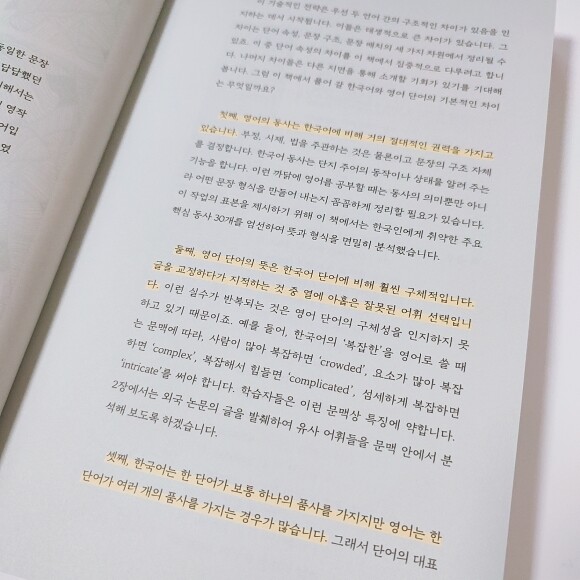 동일한 문장
답답했던
해서는
명작
어입
였
이 기술적인 전략은 우선 두 언어 간의 구조적인 차이가 있음을 인
지하는 데서 시작됩니다. 이들은 태생적으로 큰 차이가 있습니다. 그
차이는 단어 속성, 문장 구조, 문장 배치의 세 가지 차원에서 정리될 수
있죠. 이 중 단어 속성의 차이를 이 책에서 집중적으로 다루려고 합니
다. 나머지 차이들은 다른 지면을 통해 소개할 기회가 있기를 기대해
봅니다. 그럼 이 책에서 풀어 갈 한국어와 영어 단어의 기본적인 차이
는 무엇일까요?
첫째, 영어의 동사는 한국어에 비해 거의 절대적인 권력을 가지고
있습니다. 부정, 시제, 법을 주관하는 것은 물론이고 문장의 구조 자체
를 결정합니다. 한국어 동사는 단지 주어의 동작이나 상태를 알려 주는
기능을 합니다. 이런 까닭에 영어를 공부할 때는 동사의 의미뿐만 아니
라 어떤 문장 형식을 만들어 내는지 꼼꼼하게 정리할 필요가 있습니다.
이 작업의 표본을 제시하기 위해 이 책에서는 한국인에게 취약한 주요
핵심 동사 30개를 엄선하여 뜻과 형식을 면밀히 분석했습니다.
둘째, 영어 단어의 뜻은 한국어 단어에 비해 훨씬 구체적입니다.
글을 교정하다가 지적하는 것 중 열에 아홉은 잘못된 어휘 선택입니
다. 이런 실수가 반복되는 것은 영어 단어의 구체성을 인지하지 못
하고 있기 때문이죠. 예를 들어, 한국어의 ‘복잡한’을 영어로 쓸 때
는 문맥에 따라, 사람이 많아 복잡하면 ‘crowded’, 요소가 많아 복잡
하면 ‘complex’, 복잡해서 힘들면 ‘complicated’, 섬세하게 복잡하면
‘intricate’를 써야 합니다. 학습자들은 이런 문맥상 특징에 약합니다.
2장에서는 외국 논문의 글을 발췌하여 유사 어휘들을 문맥 안에서 분
석해 보도록 하겠습니다.
셋째, 한국어는 한 단어가 보통 하나의 품사를 가지지만 영어는 한
단어가 여러 개의 품사를 가지는 경우가 많습니다. 그래서 단어의 대표